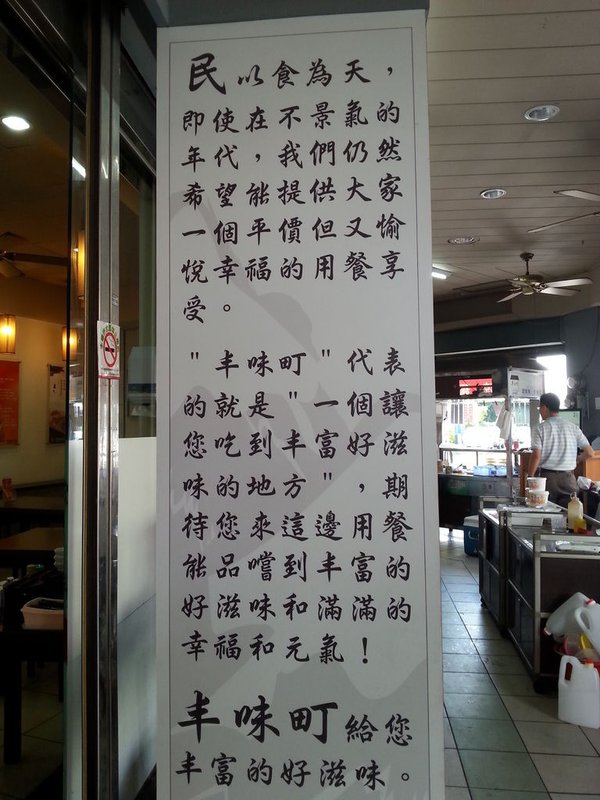 民以食為天，
即使在不景氣的
年代，我們仍然
希望能提供大家
一個平價但又愉
悅幸福的用餐享
受。
"丰味町"代表
的就是"一個讓
您吃到丰富好滋
味的地方"，期
待您來這邊用餐
能品嚐到丰富的
好滋味和滿滿的
幸福和元氣！
丰味町給您
丰富的好滋味。